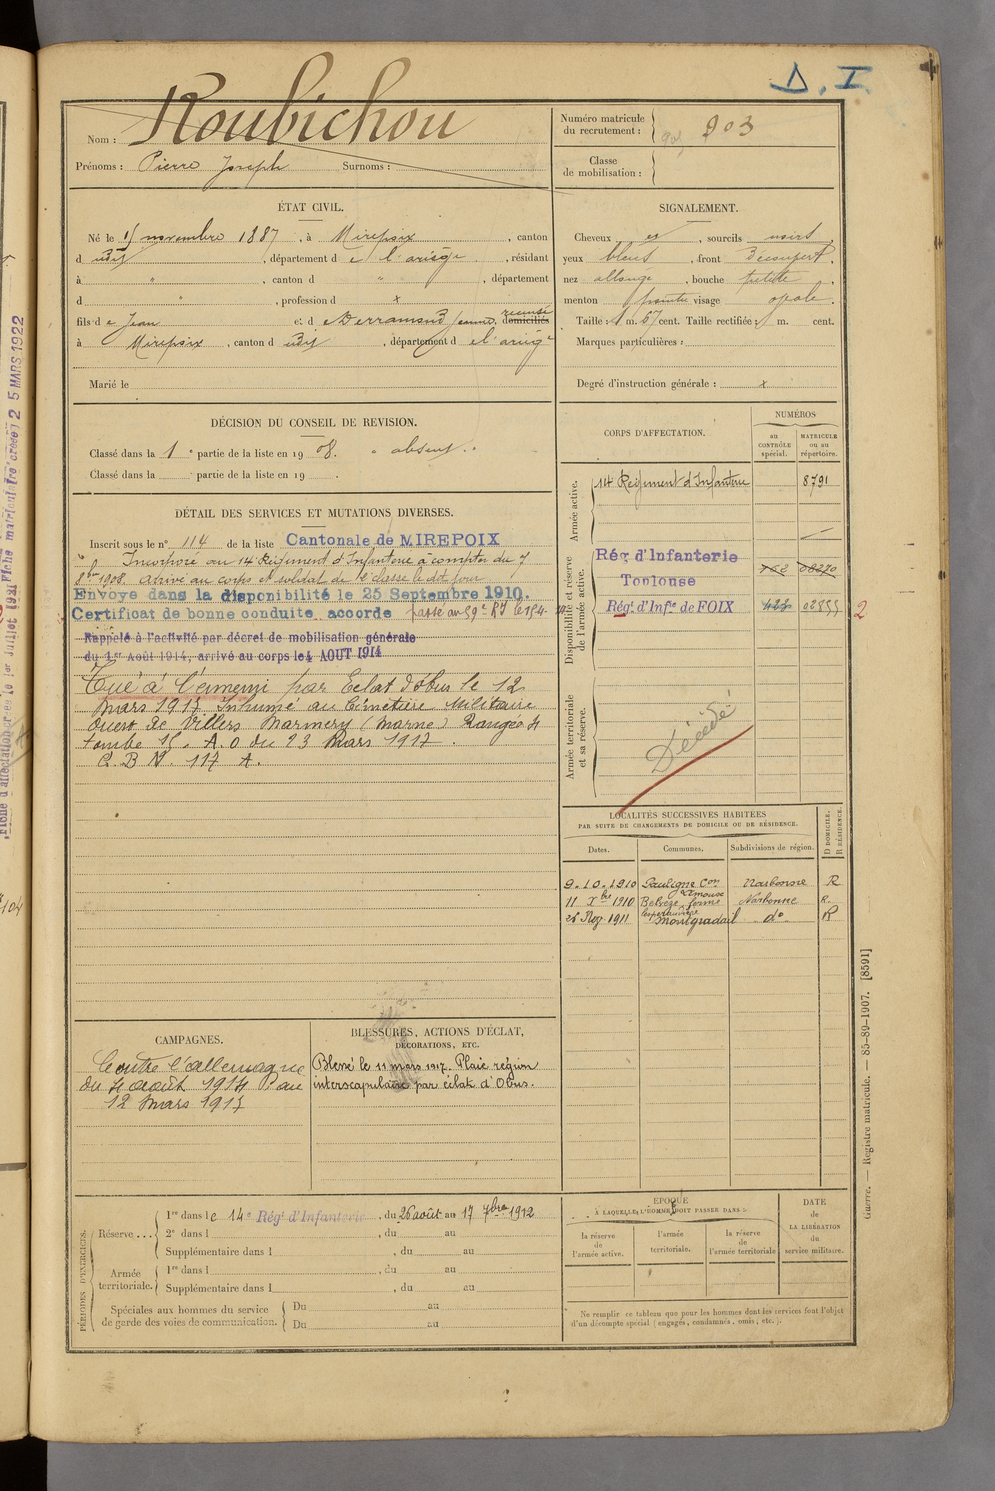 D. I.
Nom : Roubichou
Prénoms : Pierre Joseph Surnoms :
Numéro matricule du recrutement : 903
Classe de mobilisation :
ÉTAT CIVIL.
Né le 15 novembre 1887, à Mirepoix, canton
d udit, département de l'ariège, résidant
à " , canton d " , département
d " , profession d x
fils de Jean et de Derramond Jeanne, domiciliés
à Mirepoix, canton d udit, département de l'ariège
Marié le
SIGNALEMENT.
Cheveux et, sourcils noirs,
yeux bleus, front découvert,
nez allongé, bouche petite,
menton pointu visage ovale.
Taille : 1 m. 67 cent. Taille rectifiée : m. cent.
Marques particulières :
Degré d'instruction générale : x
DÉCISION DU CONSEIL DE REVISION.
Classé dans la 1e partie de la liste en 1908. absent.
Classé dans la partie de la liste en 19 .
DÉTAIL DES SERVICES ET MUTATIONS DIVERSES.
Inscrit sous le n° 114 de la liste Cantonale de MIREPOIX
Incorporé au 14e Régiment d'Infanterie à compter du 7
8bre 1908. arrivé au corps et soldat de 2e classe le dit jour
Envoyé dans la disponibilité le 25 Septembre 1910.
Certificat de bonne conduite accordé passé au 59e RI le 15-4-
Rappelé à l'activité par décret de mobilisation générale
du 1er Août 1914, arrivé au corps le 4 AOUT 1914
Tué à l'ennemi par Eclat d'obus le 12
mars 1917 Inhumé au Cimetière Militaire
Ouest de Villers Marmery (Marne) Rangée 4
tombe 15. A. O du 23 Mars 1917.
C. B N. 117 A.
CORPS D'AFFECTATION.
NUMÉROS
au CONTRÔLE spécial.
MATRICULE ou au répertoire.
Armée active.
14 Régiment d'Infanterie 8791
Disponibilité et réserve de l'armée active.
Rég d'Infanterie
Toulouse 768 08270
Rég. d'Inf.ie de FOIX 423 02855 2
Armée territoriale et sa réserve.
Décédé
LOCALITÉS SUCCESSIVES HABITÉES
PAR SUITE DE CHANGEMENTS DE DOMICILE OU DE RÉSIDENCE.
Dates. Communes. Subdivisions de région. D DOMICILE. R RÉSIDENCE.
9.10.1910 Pauligne Con Narbonne R
11 Xbre 1910 Belvèze ferme Narbonne R.
26 1911 Montgradail do R
CAMPAGNES.
Contre l'allemagne
du 4 août 1914 au
12 mars 1917
BLESSURES, ACTIONS D'ÉCLAT,
DÉCORATIONS, ETC.
Blessé le 11 mars 1917. Plaie région
interscapulaire par éclats d'Obus.
PÉRIODES D'EXERCICES.
Réserve ...
1re dans le 14e Régt d'Infanterie, du 26 août au 17 7bre 1912
2e dans l , du au
Supplémentaire dans l , du au
Armée territoriale.
1re dans l , du au
Supplémentaire dans l , du au
Spéciales aux hommes du service
de garde des voies de communication.
Du au
Du au
ÉPOQUE
À LAQUELLE L'HOMME DOIT PASSER DANS :
la réserve de l'armée active.
l'armée territoriale.
la réserve de l'armée territoriale
DATE de LA LIBÉRATION du service militaire.
Ne remplir ce tableau que pour les hommes dont les services font l'objet
d'un décompte spécial (engagés, condamnés, omis, etc.).
Guerre. — Registre matricule. — 85-89-1907. [8591]